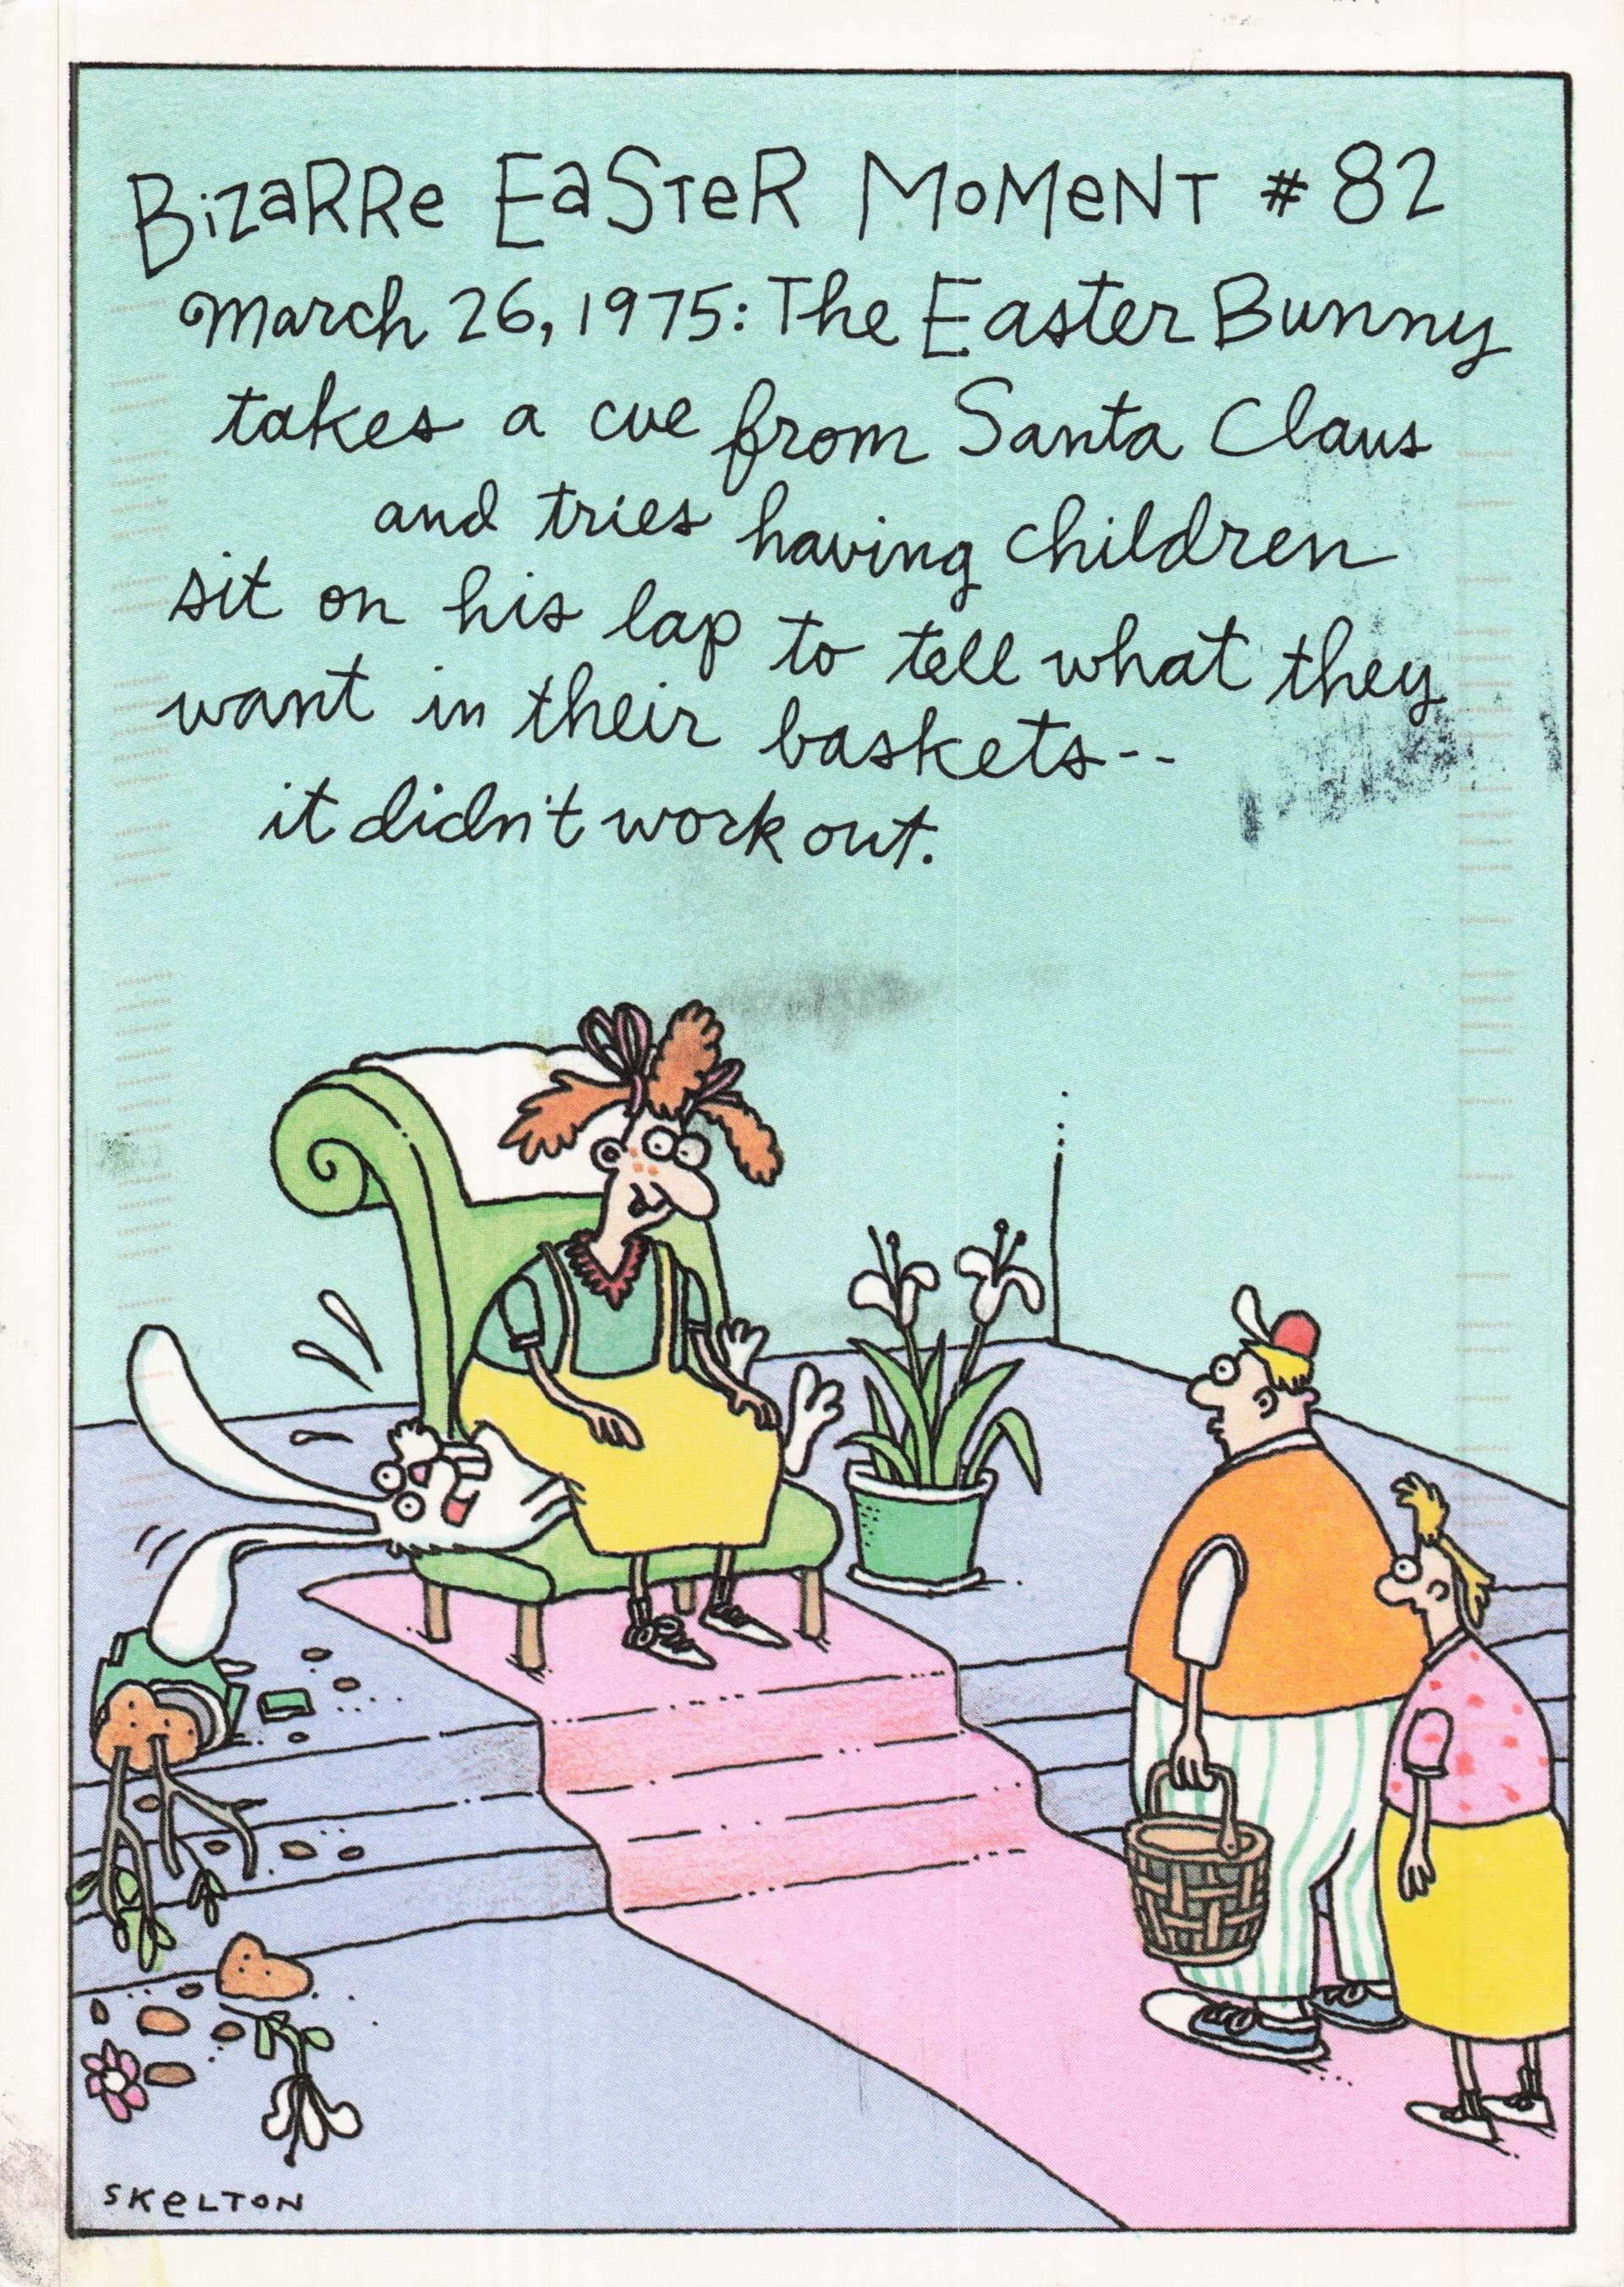 BizaRRe EaSTeR MoMeNT #82
March 26, 1975: The Easter Bunny
takes a cue from Santa Claus
and tries having children
sit on his lap to tell what they
want in their baskets--
it didn't work out.
SKeLTON